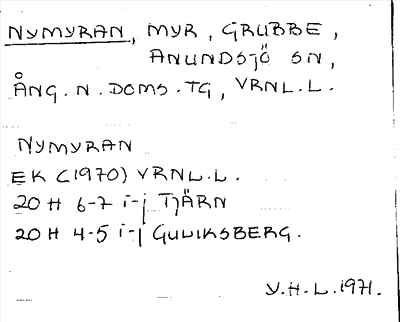 NYMYRAN, MYR, GRUBBE,
ANUNDSJÖ SN,
ÅNG. N. DOMS. TG, VRNL.L.
NYMYRAN
EK (1970) VRNL.L.
20 H 6-7 i-j TJÄRN
20 H 4-5 i-j GULIKSBERG.
V.H-L.1971.